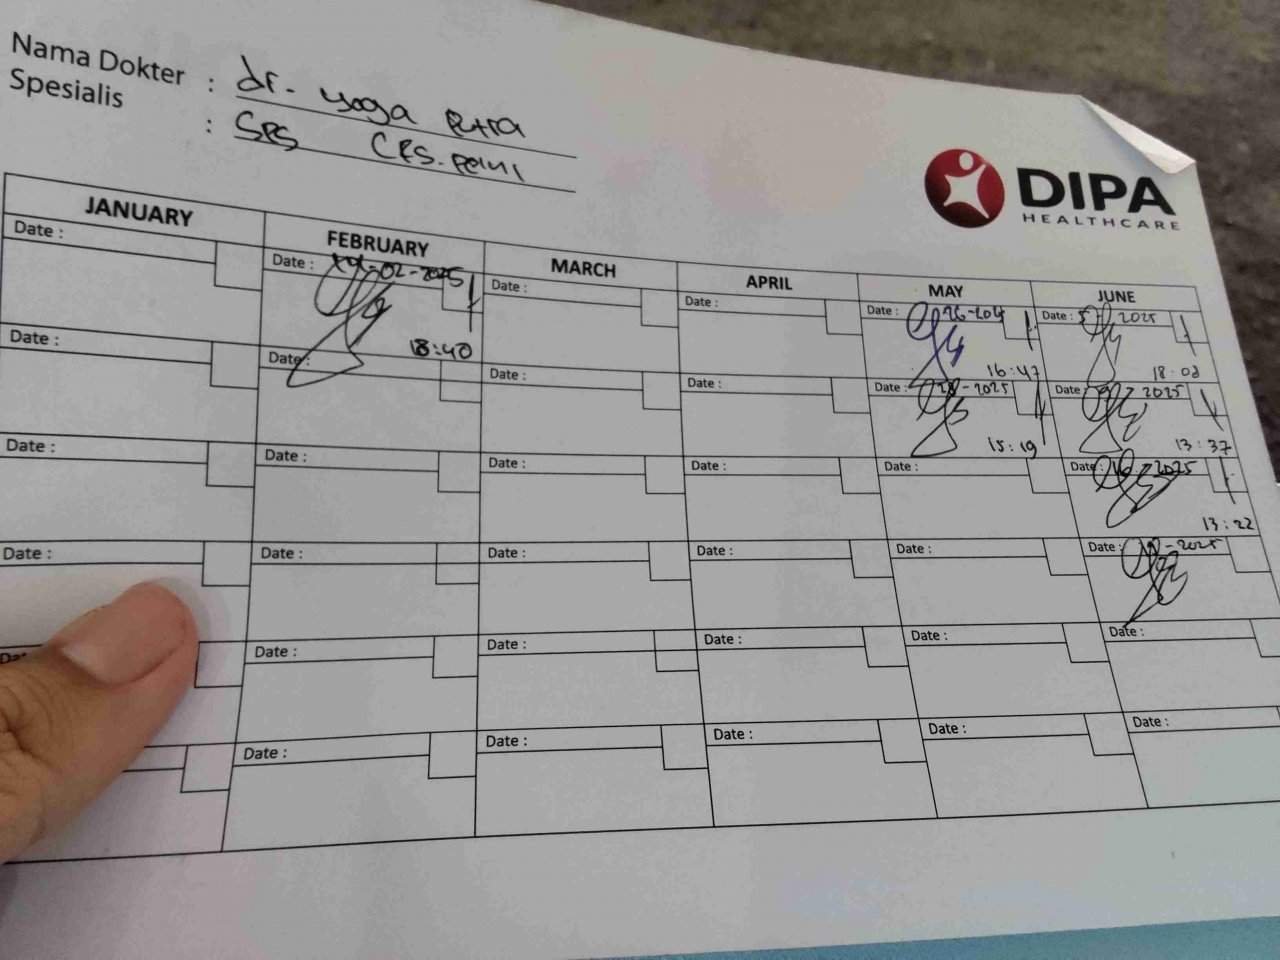 Nama Dokter : dr. yoga Putra
Spesialis : SPS CRS. Pelni
DIPA
HEALTHCARE
JANUARY FEBRUARY MARCH APRIL MAY JUNE
Date : Date : -02-2025 Date : Date : Date : Date : 5 2025
18:40 16:47 18:08
Date : Date : Date : Date : Date : -2025 Date : 2025
15:19 13:37
Date : Date : Date : Date : Date : Date : 2025
13:22
Date : Date : Date : Date : Date : Date : -2025
Date : Date : Date : Date : Date :
Date : Date : Date : Date : Date :